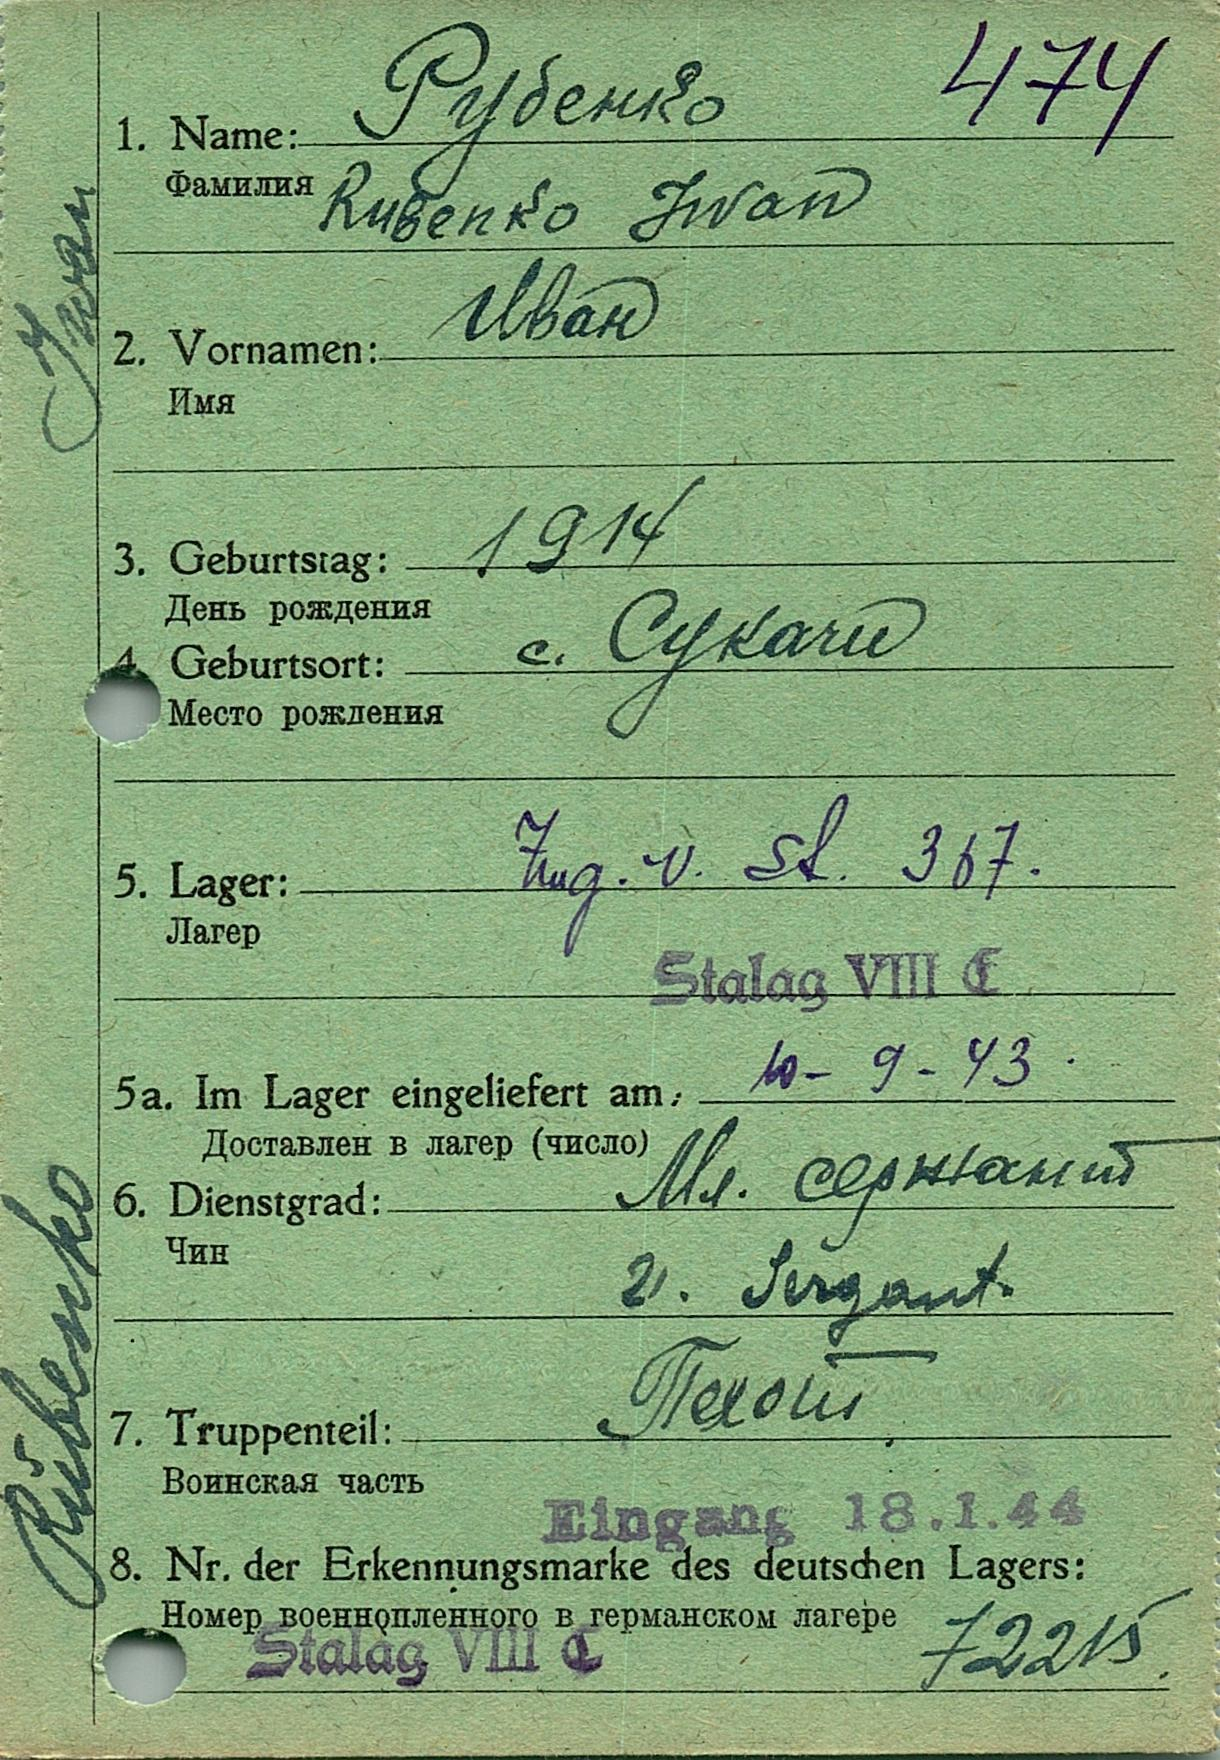 474
1. Name: Рубенко
Фамилия
Rubenko Iwan
2. Vornamen: Иван
Имя
3. Geburtstag: 1914
День рождения
4. Geburtsort: с. Сукачи
Место рождения
5. Lager: Zug. v. St. 367.
Лагер
Stalag VIII C
5a. Im Lager eingeliefert am: 10-9-43.
Доставлен в лагер (число)
6. Dienstgrad: Мл. сержант
Чин
U. Sergant.
7. Truppenteil: Пехот
Воинская часть
Eingang 18.1.44
8. Nr. der Erkennungsmarke des deutschen Lagers:
Номер военнопленного в германском лагере
Stalag VIII C 72215.
Rubenko Iwan